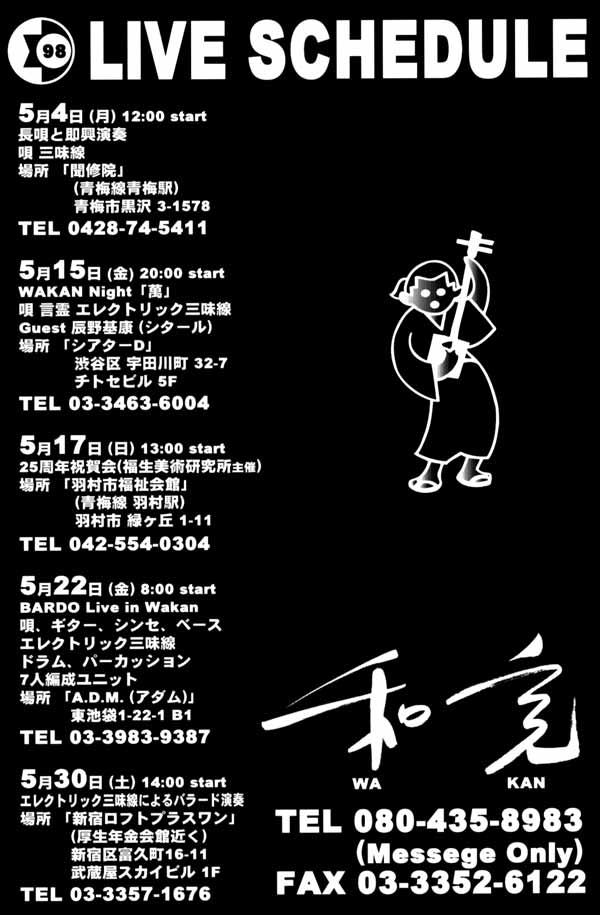 98 LIVE SCHEDULE
5月4日 (月) 12:00 start
長唄と即興演奏
唄 三味線
場所 「聞修院」
(青梅線青梅駅)
青梅市黒沢 3-1578
TEL 0428-74-5411
5月15日 (金) 20:00 start
WAKAN Night「萬」
唄 言霊 エレクトリック三味線
Guest 辰野基康 (シタール)
場所 「シアターD」
渋谷区 宇田川町 32-7
チトセビル 5F
TEL 03-3463-6004
5月17日 (日) 13:00 start
25周年祝賀会(福生美術研究所主催)
場所 「羽村市福祉会館」
(青梅線 羽村駅)
羽村市 緑ヶ丘 1-11
TEL 042-554-0304
5月22日 (金) 8:00 start
BARDO Live in Wakan
唄、ギター、シンセ、ベース
エレクトリック三味線
ドラム、パーカッション
7人編成ユニット
場所 「A.D.M. (アダム)」
東池袋1-22-1 B1
TEL 03-3983-9387
5月30日 (土) 14:00 start
エレクトリック三味線によるバラード演奏
場所 「新宿ロフトプラスワン」
(厚生年金会館近く)
新宿区富久町16-11
武蔵屋スカイビル 1F
TEL 03-3357-1676
和完
WA KAN
TEL 080-435-8983
(Messege Only)
FAX 03-3352-6122